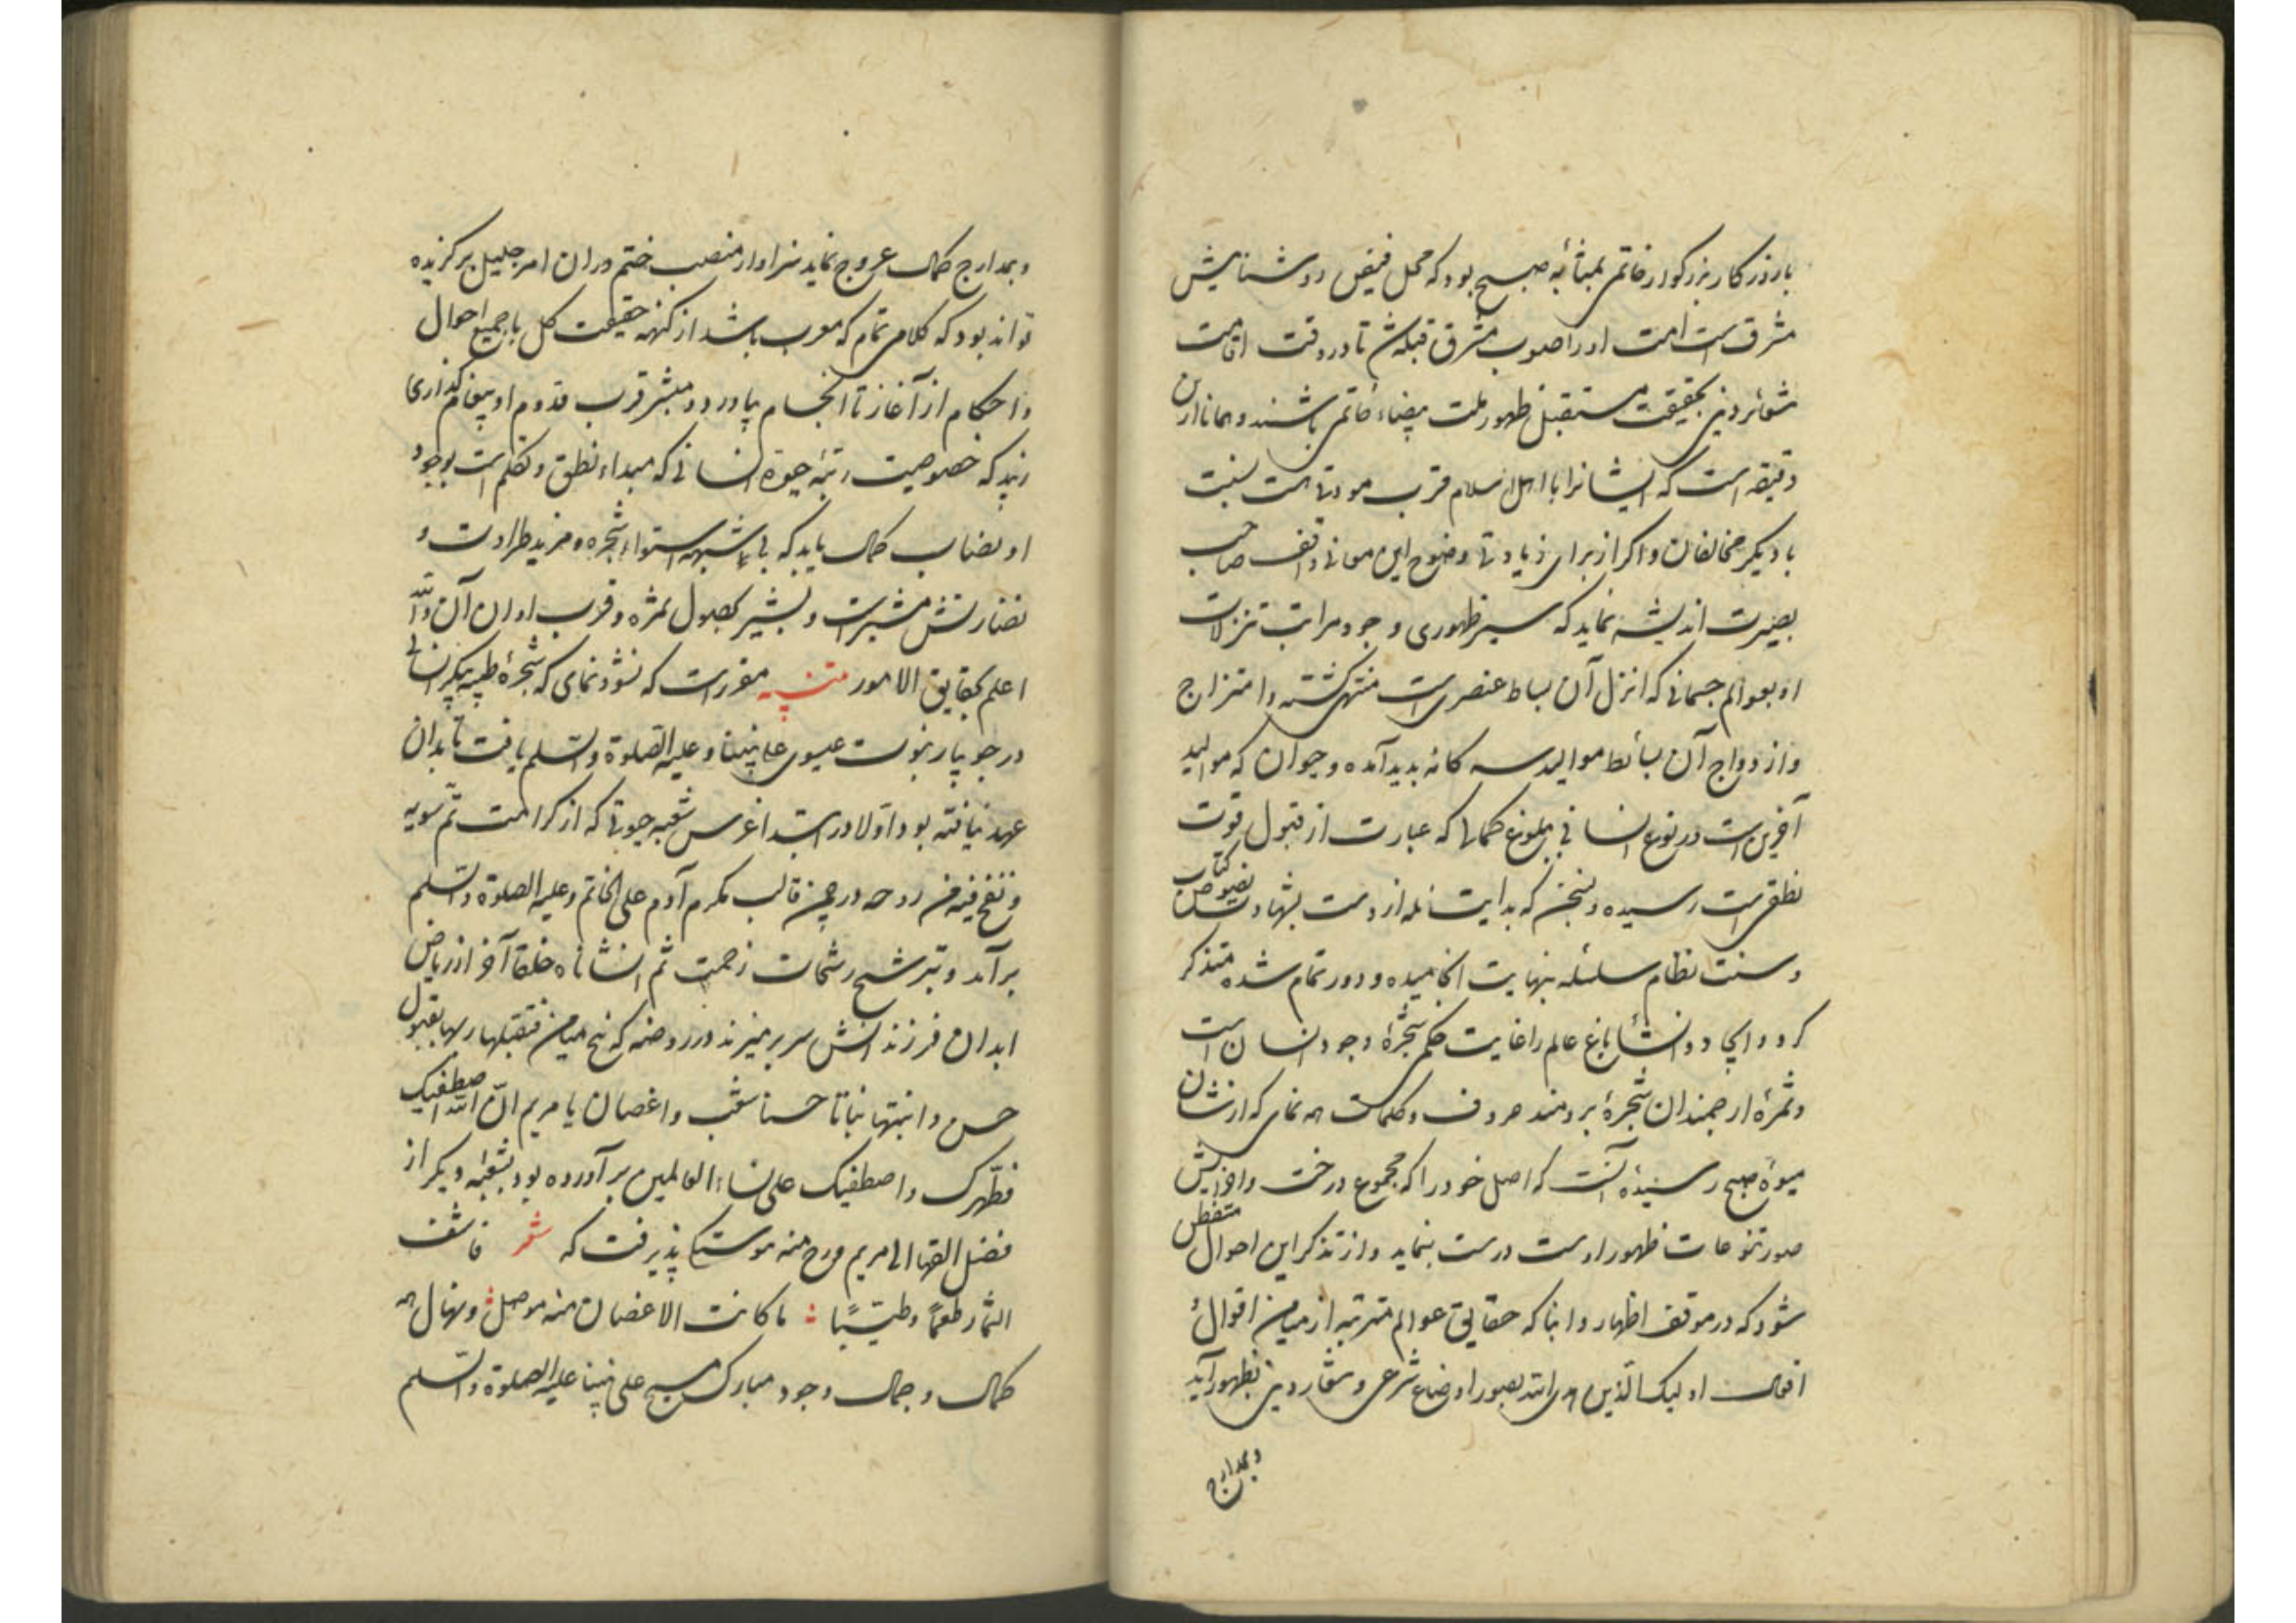 با روزکار بزرکوار خاتمی بمثابه صبح بود که محل فیض روشنایش
مشرقست امت او را صوب مشرق قبله شد تا در وقت اقامت
شعائر دینی بحقیقت مستقبل ظهور ملت بیضاء خاتمی باشند و همانا ازین
دقیقه است که ایشانرا با اهل اسلام قرب مودتی هست نسبت
با دیکر مخالفان و اکر از برای زیادتی وضوح این معانی واقف صاحب
بصیرت اندیشه نماید که سیر ظهوری وجود مراتب تنزلات
او بعوالم جسمانی که انزل آن بساط عنصریست منتهی کشته و امتزاج
و ازدواج آن بسائط موالید سه کانه بدید آمده و حیوان که موالید
آفرین است در نوع انسانی ببلوغ کمالی که عبارت از قبول قوت
نطقی است رسیده و سخن که بدایت سلسله ازوست بشهادت نصوص کتاب
و سنت نظام سلسله بنهایت انجامیده و دور تمام شده متذکر
کردد و ایجاد و انشا باغ عالم را غایت حکم شجرۀ وجود انسان است
و ثمرۀ ارجمند آن شجرۀ برومند حروف و کلمات همه نمای که از نشان
میوۀ صبح رسیده آنست که اصل خود را که مجموع درخت و افزایش
صور تنوعات ظهور اوست درست بنماید و از تذکر این احوال متفطن
شود که در موقف اظهار و انبا که حقایق عوالم مترتبه از میامن اقوال و
افعال اولیک الذین هدی الله بصور اوضاع شرعی و شعار دینی بظهور آید
و بمدارج
و بمدارج کمال عروج نماید سزاوار منصب ختم در آن امر جلیل برکزیده
تواند بود که کلامی تمام که معرب باشد از کنهه حقیقت کل با جمیع احوال
و احکام از آغاز تا انجام بیاورد و مبشر قرب قدوم او پیغام کذاری
زیبد که خصوصیت رتبه حیوة انسانی که مبداء نطق و تکلم است بوجود
او بنصاب کمال یابد که بی شبهه استواء شجره و مزید طراوت و
نضارتش مشیر است و بشیر بحصول ثمره و قرب اوان آن والله
اعلم بحقایق الامور تنبیه مقررست که نشو و نمای که شجرۀ طیبه پیکر انسانی
در جویبار نبوت عیسوی علی نبینا و علیه الصلوة والسلم یافت تا بدان
عهد نیافته بود اولا در ابتدا غرس شعبه حیوتی که از کرامت ثم سویه
و نفخ فیه من روحه در چمن قالب مکرم آدم علی الخاتم و علیه الصلوة والسلم
برآمد و بترشیح رشحات رحمت ثم انشاناه خلقا آخر از ریاض
ابدان فرزندانش سر بر میزند در روضه که نخ میامن فتقبلها ربها بقبول
حسن و انبتها نباتا حسنا شعب و اغصان یا مریم ان الله اصطفیک
و طهرک و اصطفیک علی نساء العالمین برآورده بود بشعبه دیکر از
فضل القیها الی مریم و روح منه موستکی پذیرفت که شعر فاشف
الثمار طعما و طیبا ما کانت الاغصان منه موصل و نهال همه
کمال و جمال وجود مبارک مسیح علی نبینا علیه الصلوة والسلم